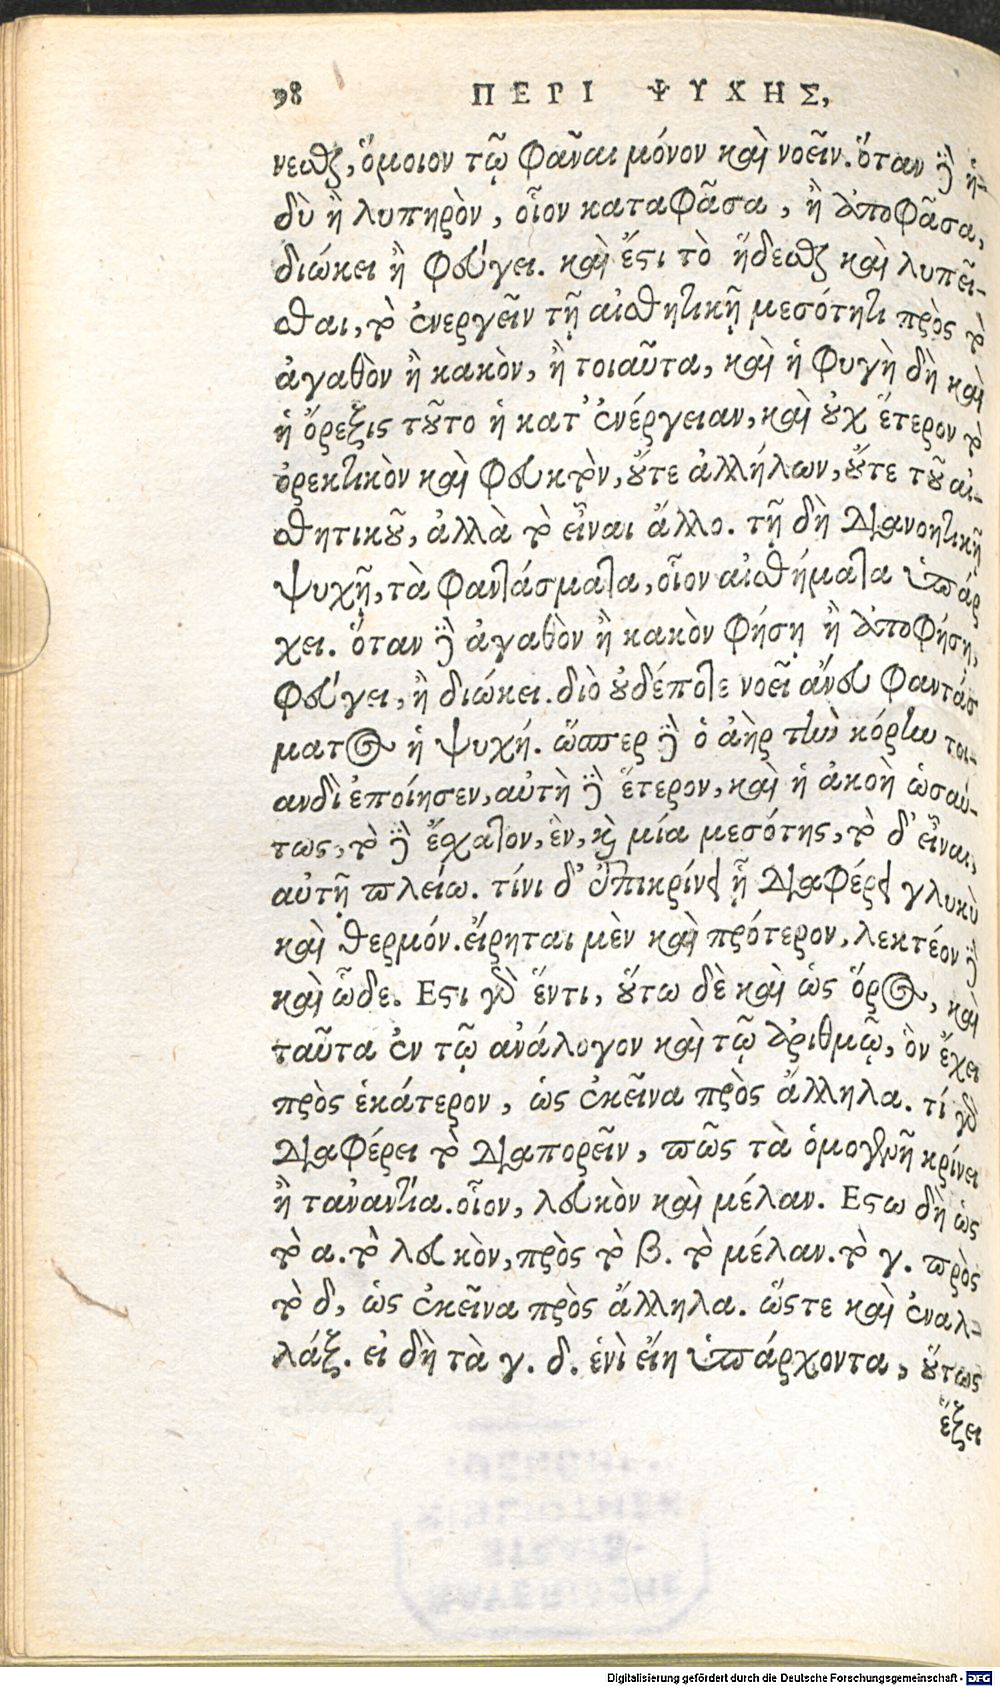 98 ΠΕΡΙ ΨΥΧΗΣ,
νεσθαι, ὅμοιον τῷ φᾶναι μόνον καὶ νοεῖν. ὅταν δὲ ἡ-
δὺ ἢ λυπηρὸν, οἷον καταφᾶσα, ἢ ἀποφᾶσα,
διώκει ἢ φεύγει. καὶ ἔστι τὸ ἥδεσθαι καὶ λυπεῖ-
σθαι, τὸ ἐνεργεῖν τῇ αἰσθητικῇ μεσότητι πρὸς τὸ
ἀγαθὸν ἢ κακὸν, ἢ τοιαῦτα, καὶ ἡ φυγὴ δὴ καὶ
ἡ ὄρεξις τοῦτο ἡ κατ' ἐνέργειαν, καὶ οὐχ ἕτερον τὸ
ὀρεκτικὸν καὶ φευκτὸν, οὔτε ἀλλήλων, οὔτε τοῦ αἰ-
σθητικοῦ, ἀλλὰ τὸ εἶναι ἄλλο. τῇ δὴ διανοητικῇ
ψυχῇ, τὰ φαντάσματα, οἷον αἰσθήματα ὑπάρ
χει. ὅταν δὲ ἀγαθὸν ἢ κακὸν φήσῃ ἢ ἀποφήσῃ,
φεύγει, ἢ διώκει. διὸ οὐδέποτε νοεῖ ἄνευ φαντάσ
ματος ἡ ψυχή. ὥσπερ δὲ ὁ ἀὴρ τὴν κόρην τοι-
ανδὶ ἐποίησεν, αὐτὴ δὲ ἕτερον, καὶ ἡ ἀκοὴ ὡσαύ-
τως, τὸ δὲ ἔσχατον, ἓν, καὶ μία μεσότης, τὸ δ' εἶναι,
αὐτῇ πλείω. τίνι δ' ἐπικρίνει ᾗ διαφέρει γλυκὺ
καὶ θερμόν. εἴρηται μὲν καὶ πρότερον, λεκτέον δὲ
καὶ ὧδε. Εστι γὰρ ἕντι, οὕτω δὲ καὶ ὡς ὅρος, καὶ
ταῦτα ἐν τῷ ἀνάλογον καὶ τῷ ἀριθμῷ, ὃν ἔχει
πρὸς ἑκάτερον, ὡς ἐκεῖνα πρὸς ἄλληλα. τί γὰρ
διαφέρει τὸ διαπορεῖν, πῶς τὰ ὁμογενῆ κρίνει
ἢ τἀναντία. οἷον, λευκὸν καὶ μέλαν. Εστω δὴ ὡς
τὸ α. τὸ λευκὸν, πρὸς τὸ β. τὸ μέλαν. τὸ γ. πρὸς
τὸ δ, ὡς ἐκεῖνα πρὸς ἄλληλα. ὥστε καὶ ἐναλ-
λάξ. εἰ δὴ τὰ γ. δ. ἑνὶ εἴη ὑπάρχοντα, οὕτως
ἕξει
Digitalisierung gefördert durch die Deutsche Forschungsgemeinschaft - DFG